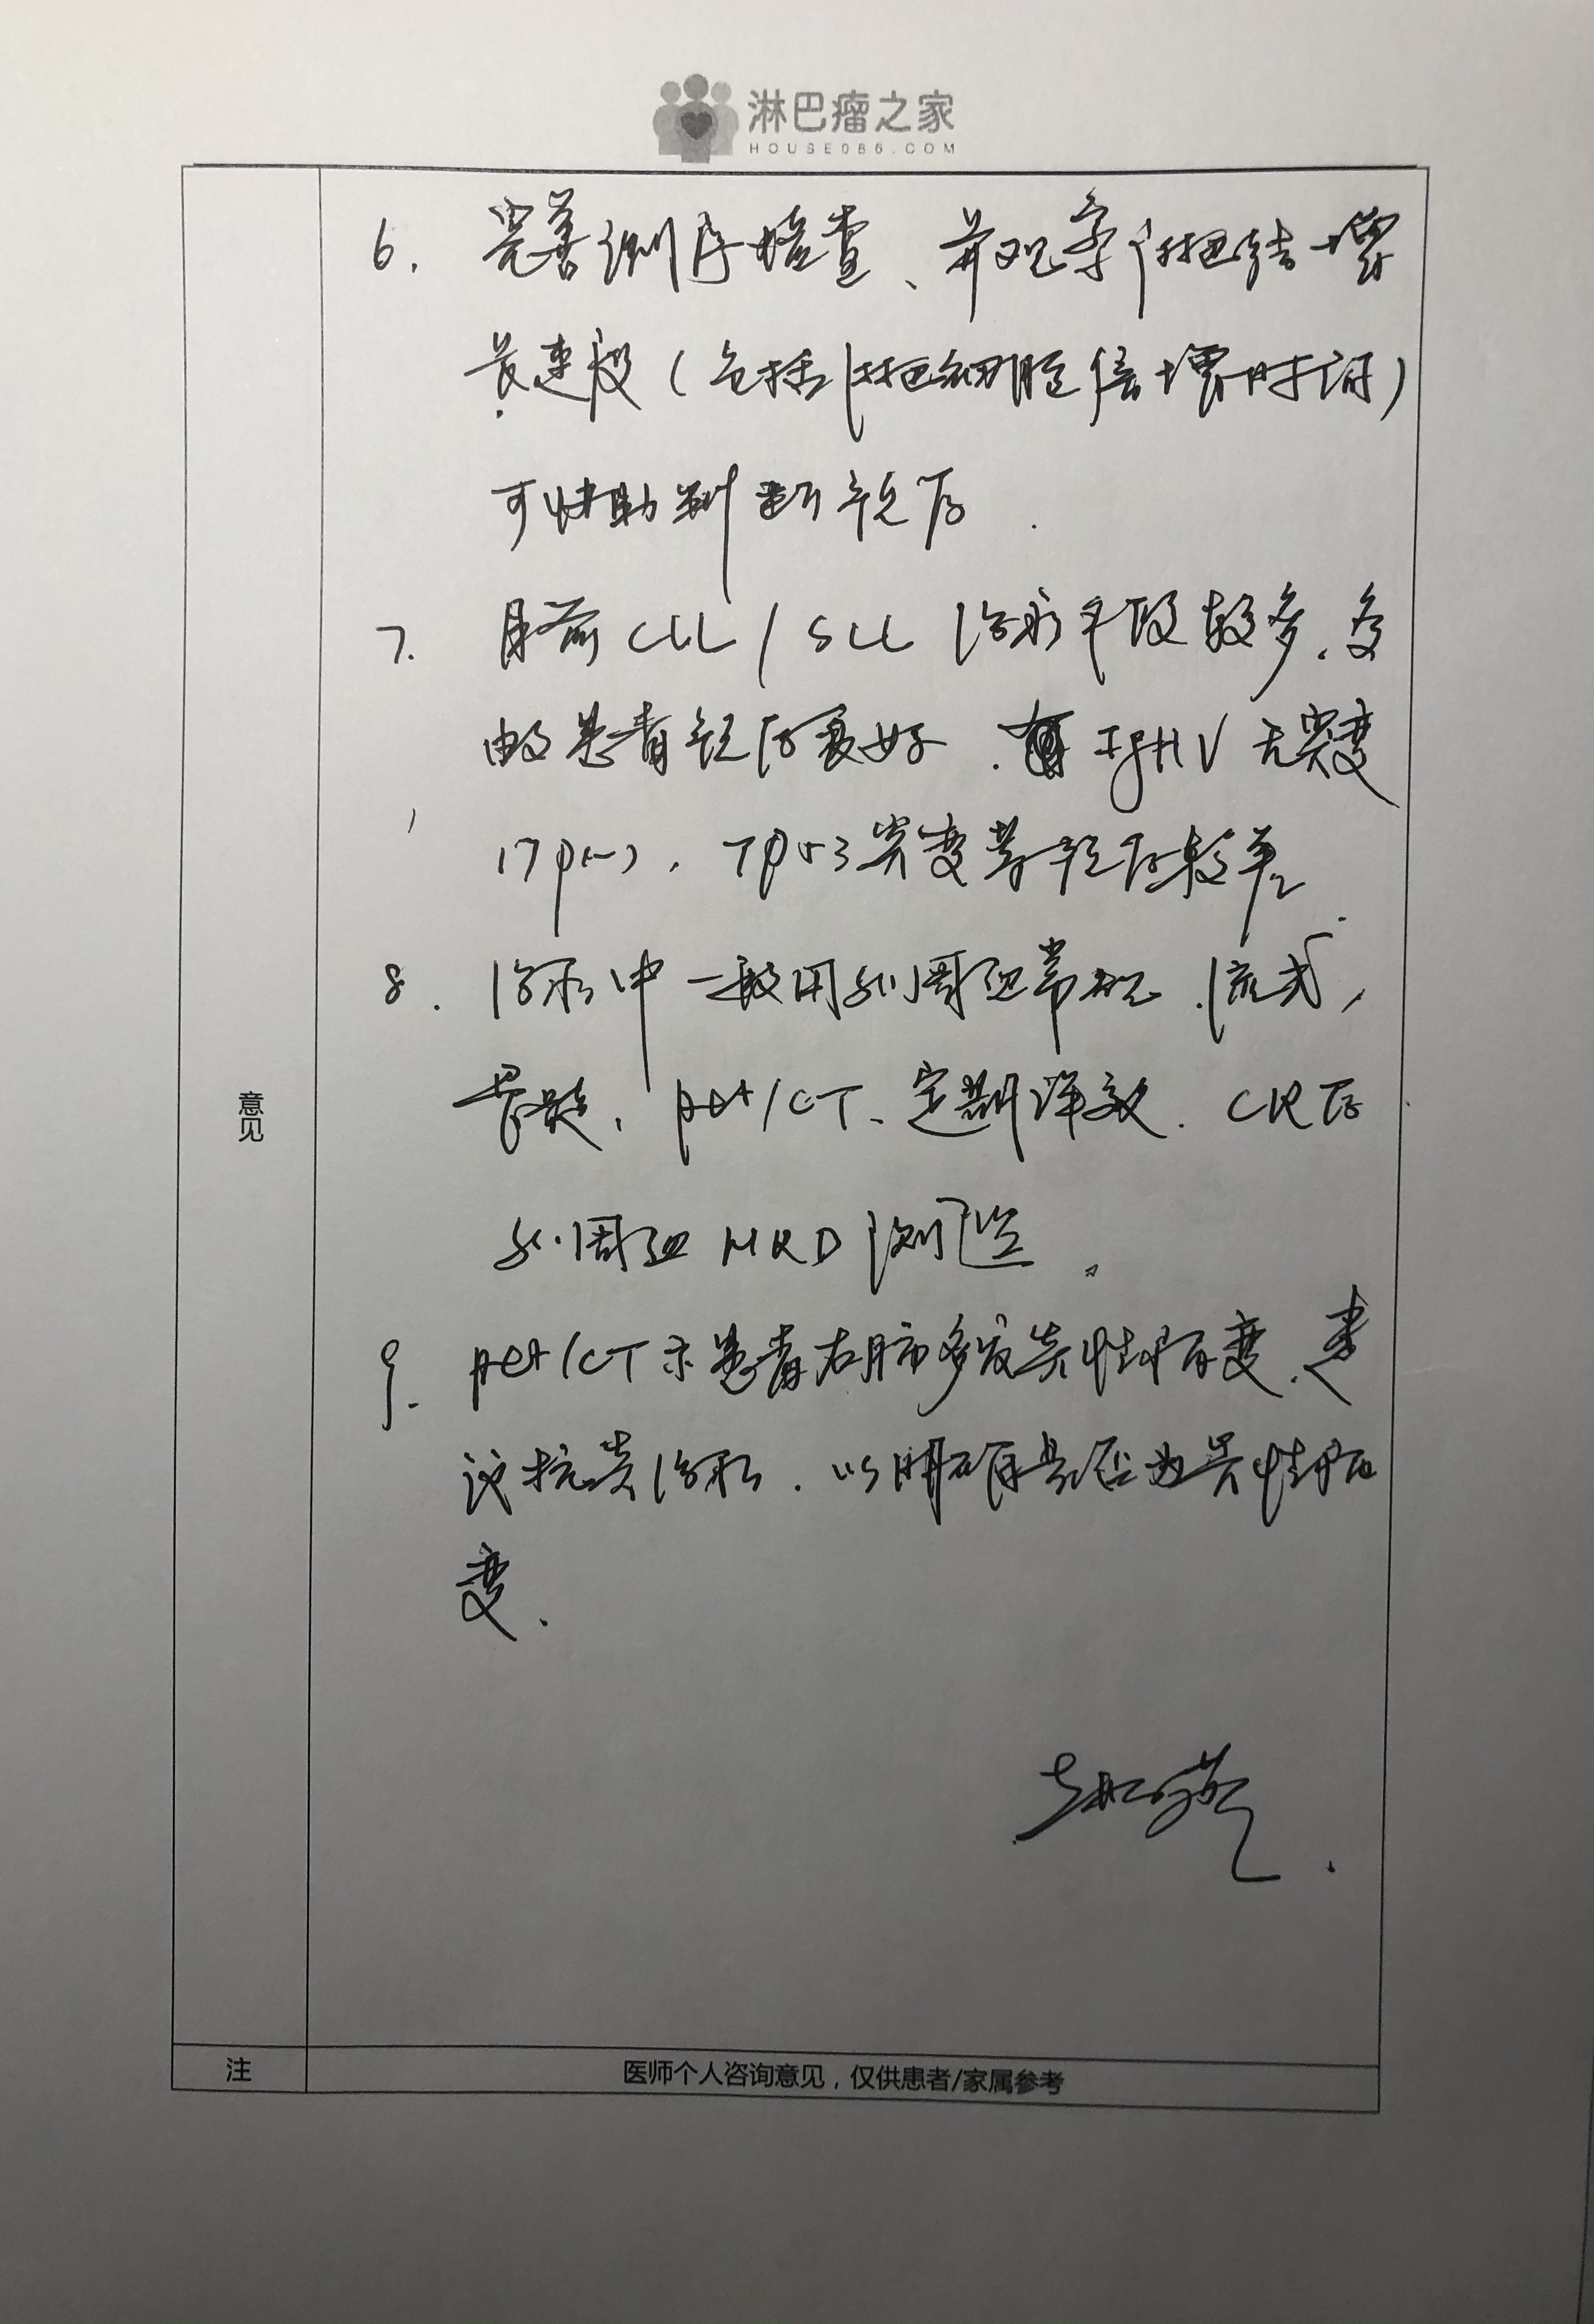 淋巴瘤之家
HOUSE086.COM
6. 完善测序检查、并观察淋巴结增
长速度(包括淋巴细胞倍增时间)
可协助判断预后.
7. 目前CLL/SLL治疗手段较多.多
数患者预后良好. IgHV无突变
17p(-), Tp53突变者预后较差.
8. 治疗中一般用外周血常规.流式,
骨髓, pet/CT、定期评效. CR后
外周血MRD
9. pet/CT示患者右肺多发炎性病变.建
议抗炎治疗.以明确是否为炎性病
变.
意见
注
医师个人咨询意见,仅供患者/家属参考